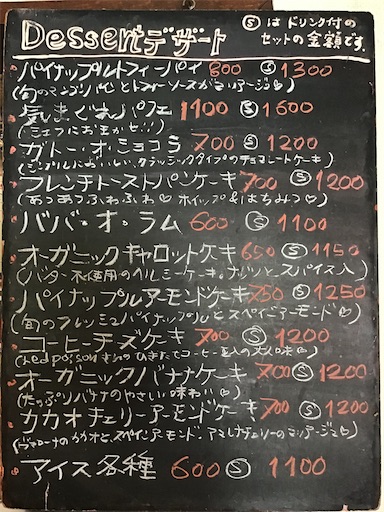 Dessert デザート
Ⓢは ドリンク付の
セットの金額です。
パイナップルトフィーパイ 800 Ⓢ 1300
気まぐれパフェ 1100 Ⓢ 1600
(シェフにおまかせ!!)
ガトー・オ・ショコラ 700 Ⓢ 1200
(シンプルにおいしい、クラッシックタイプのチョコレートケーキ)
フレンチトーストパンケーキ 700 Ⓢ 1200
(あつあつふわふわ♡ ホイップ&はちみつ♡)
ババ・オ・ラム 600 Ⓢ 1100
オーガニックキャロットケーキ 650 Ⓢ 1150
(バター不使用のヘルシーケーキ。ナッツとスパイス入)
パイナップルアーモンドケーキ 750 Ⓢ 1250
(旬のフレッシュパイナップルとスペインアーモンド♡)
コーヒーチーズケーキ 700 Ⓢ 1200
オーガニックバナナケーキ 700 Ⓢ 1200
(たっぷりバナナのやさしい味わい♡)
カカオチェリーアーモンドケーキ 700 Ⓢ 1200
(ヴァローナのカカオとスペインアーモンド、アマレナチェリーのマリアージュ♡)
アイス各種 600 Ⓢ 1100